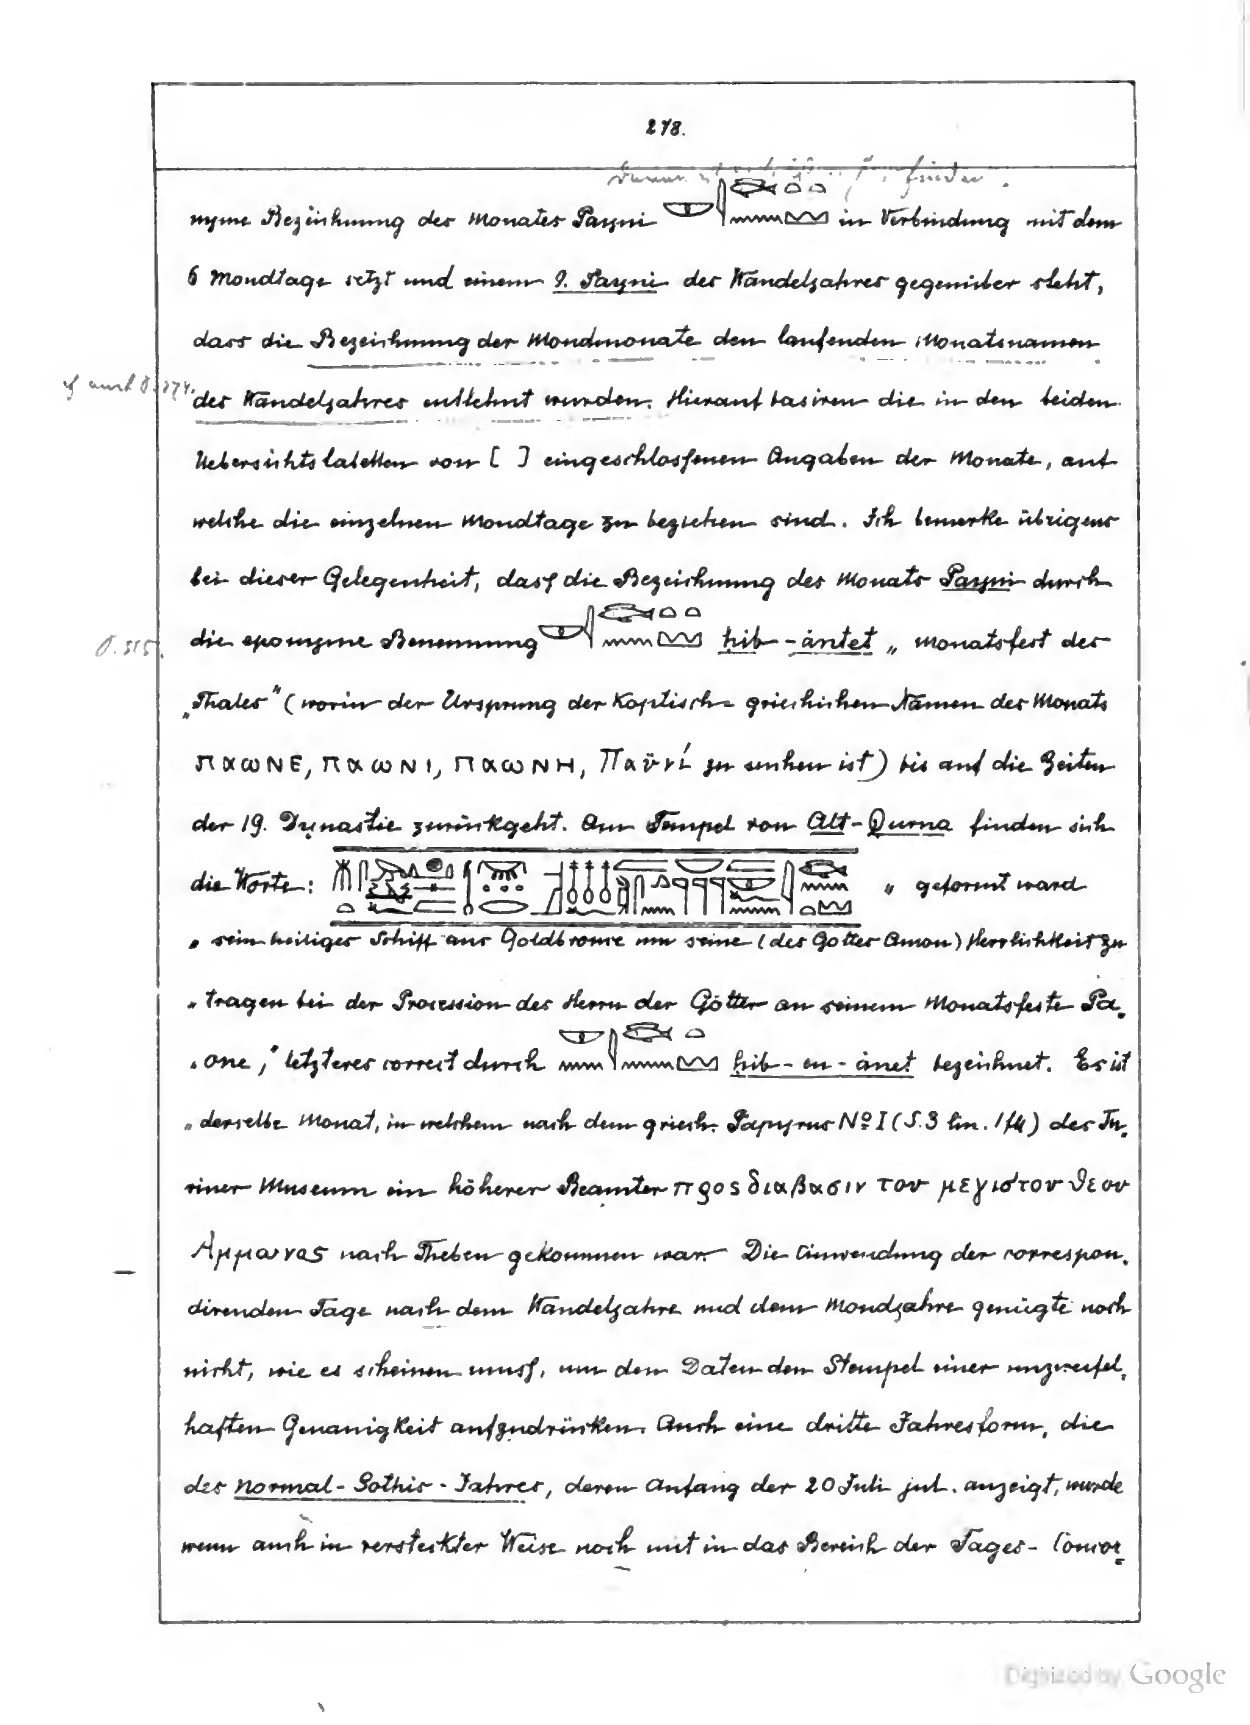 278.
nyme Bezeichnung des Monates Payni in Verbindung mit dem
6 Mondtage setzt und einem 9. Payni des Wandeljahres gegenüber steht,
dass die Bezeichnung der Mondmonate den laufenden Monatsnamen
des Wandeljahres entlehnt wurden. Hierauf basiren die in den beiden
Uebersichtstabellen von [ ] eingeschlossenen Angaben der Monate, auf
welche die einzelnen Mondtage zu beziehen sind. Ich bemerke übrigens
bei dieser Gelegenheit, dass die Bezeichnung des Monats Payni durch
die eponyme Benennung ḥib-ȧntet „Monatsfest des
S. 515.
„Thales" (worin der Ursprung der Koptisch-griechischen Namen des Monats
ⲠⲀⲰⲚⲈ, ⲠⲀⲰⲚⲒ, ⲠⲀⲰⲚⲎ, Παϋνί zu suchen ist) bis auf die Zeiten
der 19. Dynastie zurückgeht. Am Tempel von Alt-Qurna finden sich
die Worte: „geformt ward
„sein heiliges Schiff aus Goldbronce um seine (des Gottes Amon) Herrlichkeit zu
„tragen bei der Procession des Herrn der Götter an seinem Monatsfeste Pa-
„one," letzteres correct durch ḥib-en-ȧnet bezeichnet. Es ist
„derselbe Monat, in welchem nach dem griech. Papyrus No I (S. 3 lin. 1 fll) des Tu-
riner Museum ein höherer Beamter προς διαβασιν του μεγιστου θεου
Αμμωνος nach Theben gekommen war. Die Anwendung der correspon-
direnden Tage nach dem Wandeljahre und dem Mondjahre genügte noch
nicht, wie es scheinen muss, um den Daten den Stempel einer unzweifel-
haften Genauigkeit aufzudrücken. Auch eine dritte Jahresform, die
des normal-Sothis-Jahres, deren Anfang der 20 Juli jul. anzeigt, wurde
wenn auch in versteckter Weise noch mit in das Bereich der Tages-Concor-
Digitized by Google